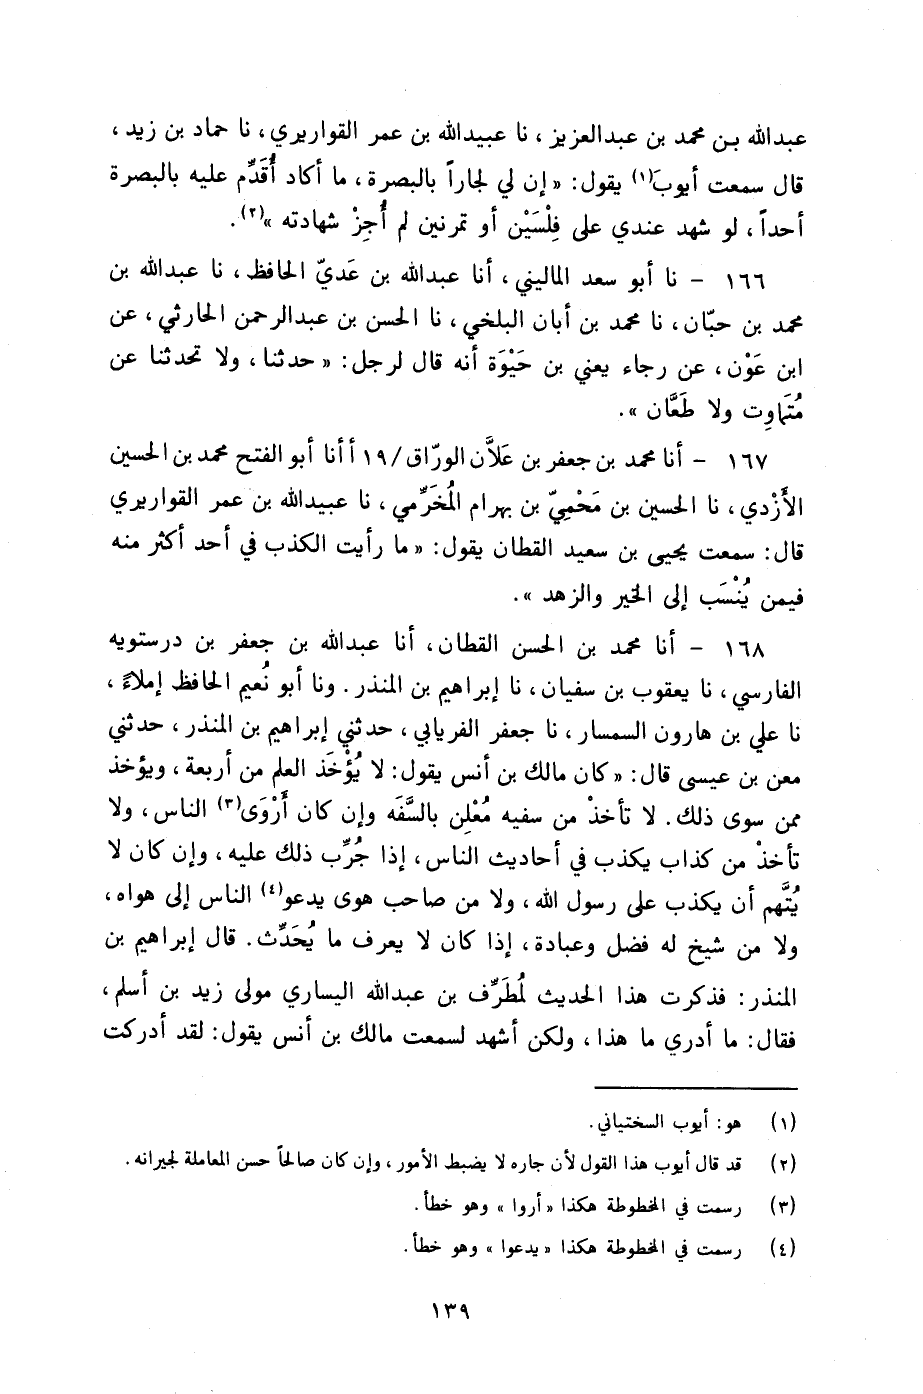 عبدالله بن محمد بن عبدالعزيز ، نا عبيدالله بن عمر القواريري ، نا حماد بن زيد ،
قال سمعت أيوبَ(١) يقول : « إن لي لجاراً بالبصرة ، ما أكاد أُقَدِّم عليه بالبصرة
أحداً ، لو شهد عندي على فِلْسَيْن أو تمرتين لم أُجِزْ شهادته »(٢) .
١٦٦ - نا أبو سعد الماليني ، أنا عبدالله بن عَديّ الحافظ ، نا عبدالله بن
محمد بن حبّان ، نا محمد بن أبان البلخي ، نا الحسن بن عبدالرحمن الحارثي ، عن
ابن عَوْن ، عن رجاء يعني بن حَيْوَة أنه قال لرجل : « حدثنا ، ولا تحدثنا عن
مُتَماوِت ولا طَعَّان » .
١٦٧ - أنا محمد بن جعفر بن عَلاَّن الورّاق/١٩ أ أنا أبو الفتح محمد بن الحسين
الأَزْدي ، نا الحسين بن مَحْمِيّ بن بهرام المُخَرِّمي ، نا عبيدالله بن عمر القواريري
قال : سمعت يحيى بن سعيد القطان يقول : « ما رأيت الكذب في أحد أكثر منه
فيمن يُنْسَب إلى الخير والزهد » .
١٦٨ - أنا محمد بن الحسن القطان ، أنا عبدالله بن جعفر بن درستويه
الفارسي ، نا يعقوب بن سفيان ، نا إبراهيم بن المنذر . ونا أبو نُعيم الحافظ إملاءً ،
نا علي بن هارون السمسار ، نا جعفر الفريابي ، حدثني إبراهيم بن المنذر ، حدثني
معن بن عيسى قال : « كان مالك بن أنس يقول : لا يُؤْخَذ العلم من أربعة ، ويؤخذ
ممن سوى ذلك . لا تأخذْ من سفيه مُعْلِن بالسَّفَه وإن كان أَرْوَى(٣) الناس ، ولا
تأخذْ من كذاب يكذب في أحاديث الناس ، إذا جُرِّب ذلك عليه ، وإن كان لا
يُتَّهم أن يكذب على رسول الله ، ولا من صاحب هوى يدعو(٤) الناس إلى هواه ،
ولا من شيخ له فضل وعبادة ، إذا كان لا يعرف ما يُحَدِّث . قال إبراهيم بن
المنذر : فذكرت هذا الحديث لمُطَرِّف بن عبدالله اليساري مولى زيد بن أسلم ،
فقال : ما أدري ما هذا ، ولكن أشهد لسمعت مالك بن أنس يقول : لقد أدركت
(١) هو : أيوب السختياني .
(٢) قد قال أيوب هذا القول لأن جاره لا يضبط الأمور ، وإن كان صالحاً حسن المعاملة لجيرانه .
(٣) رسمت في المخطوطة هكذا « أروا » وهو خطأ .
(٤) رسمت في المخطوطة هكذا « يدعوا » وهو خطأ .
١٣٩